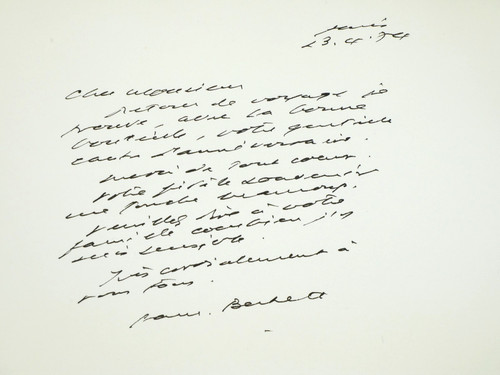 Paris
23.4.74
Cher Monsieur
Retour de voyage je
trouve, avec la bonne
bouteille, votre gentille
carte d'anniversaire.
Merci de tout coeur.
Votre fidèle souvenir
me touche beaucoup.
Veuillez dire à votre
famille combien j'y
suis sensible.
Très cordialement à
vous tous.
Sam. Beckett